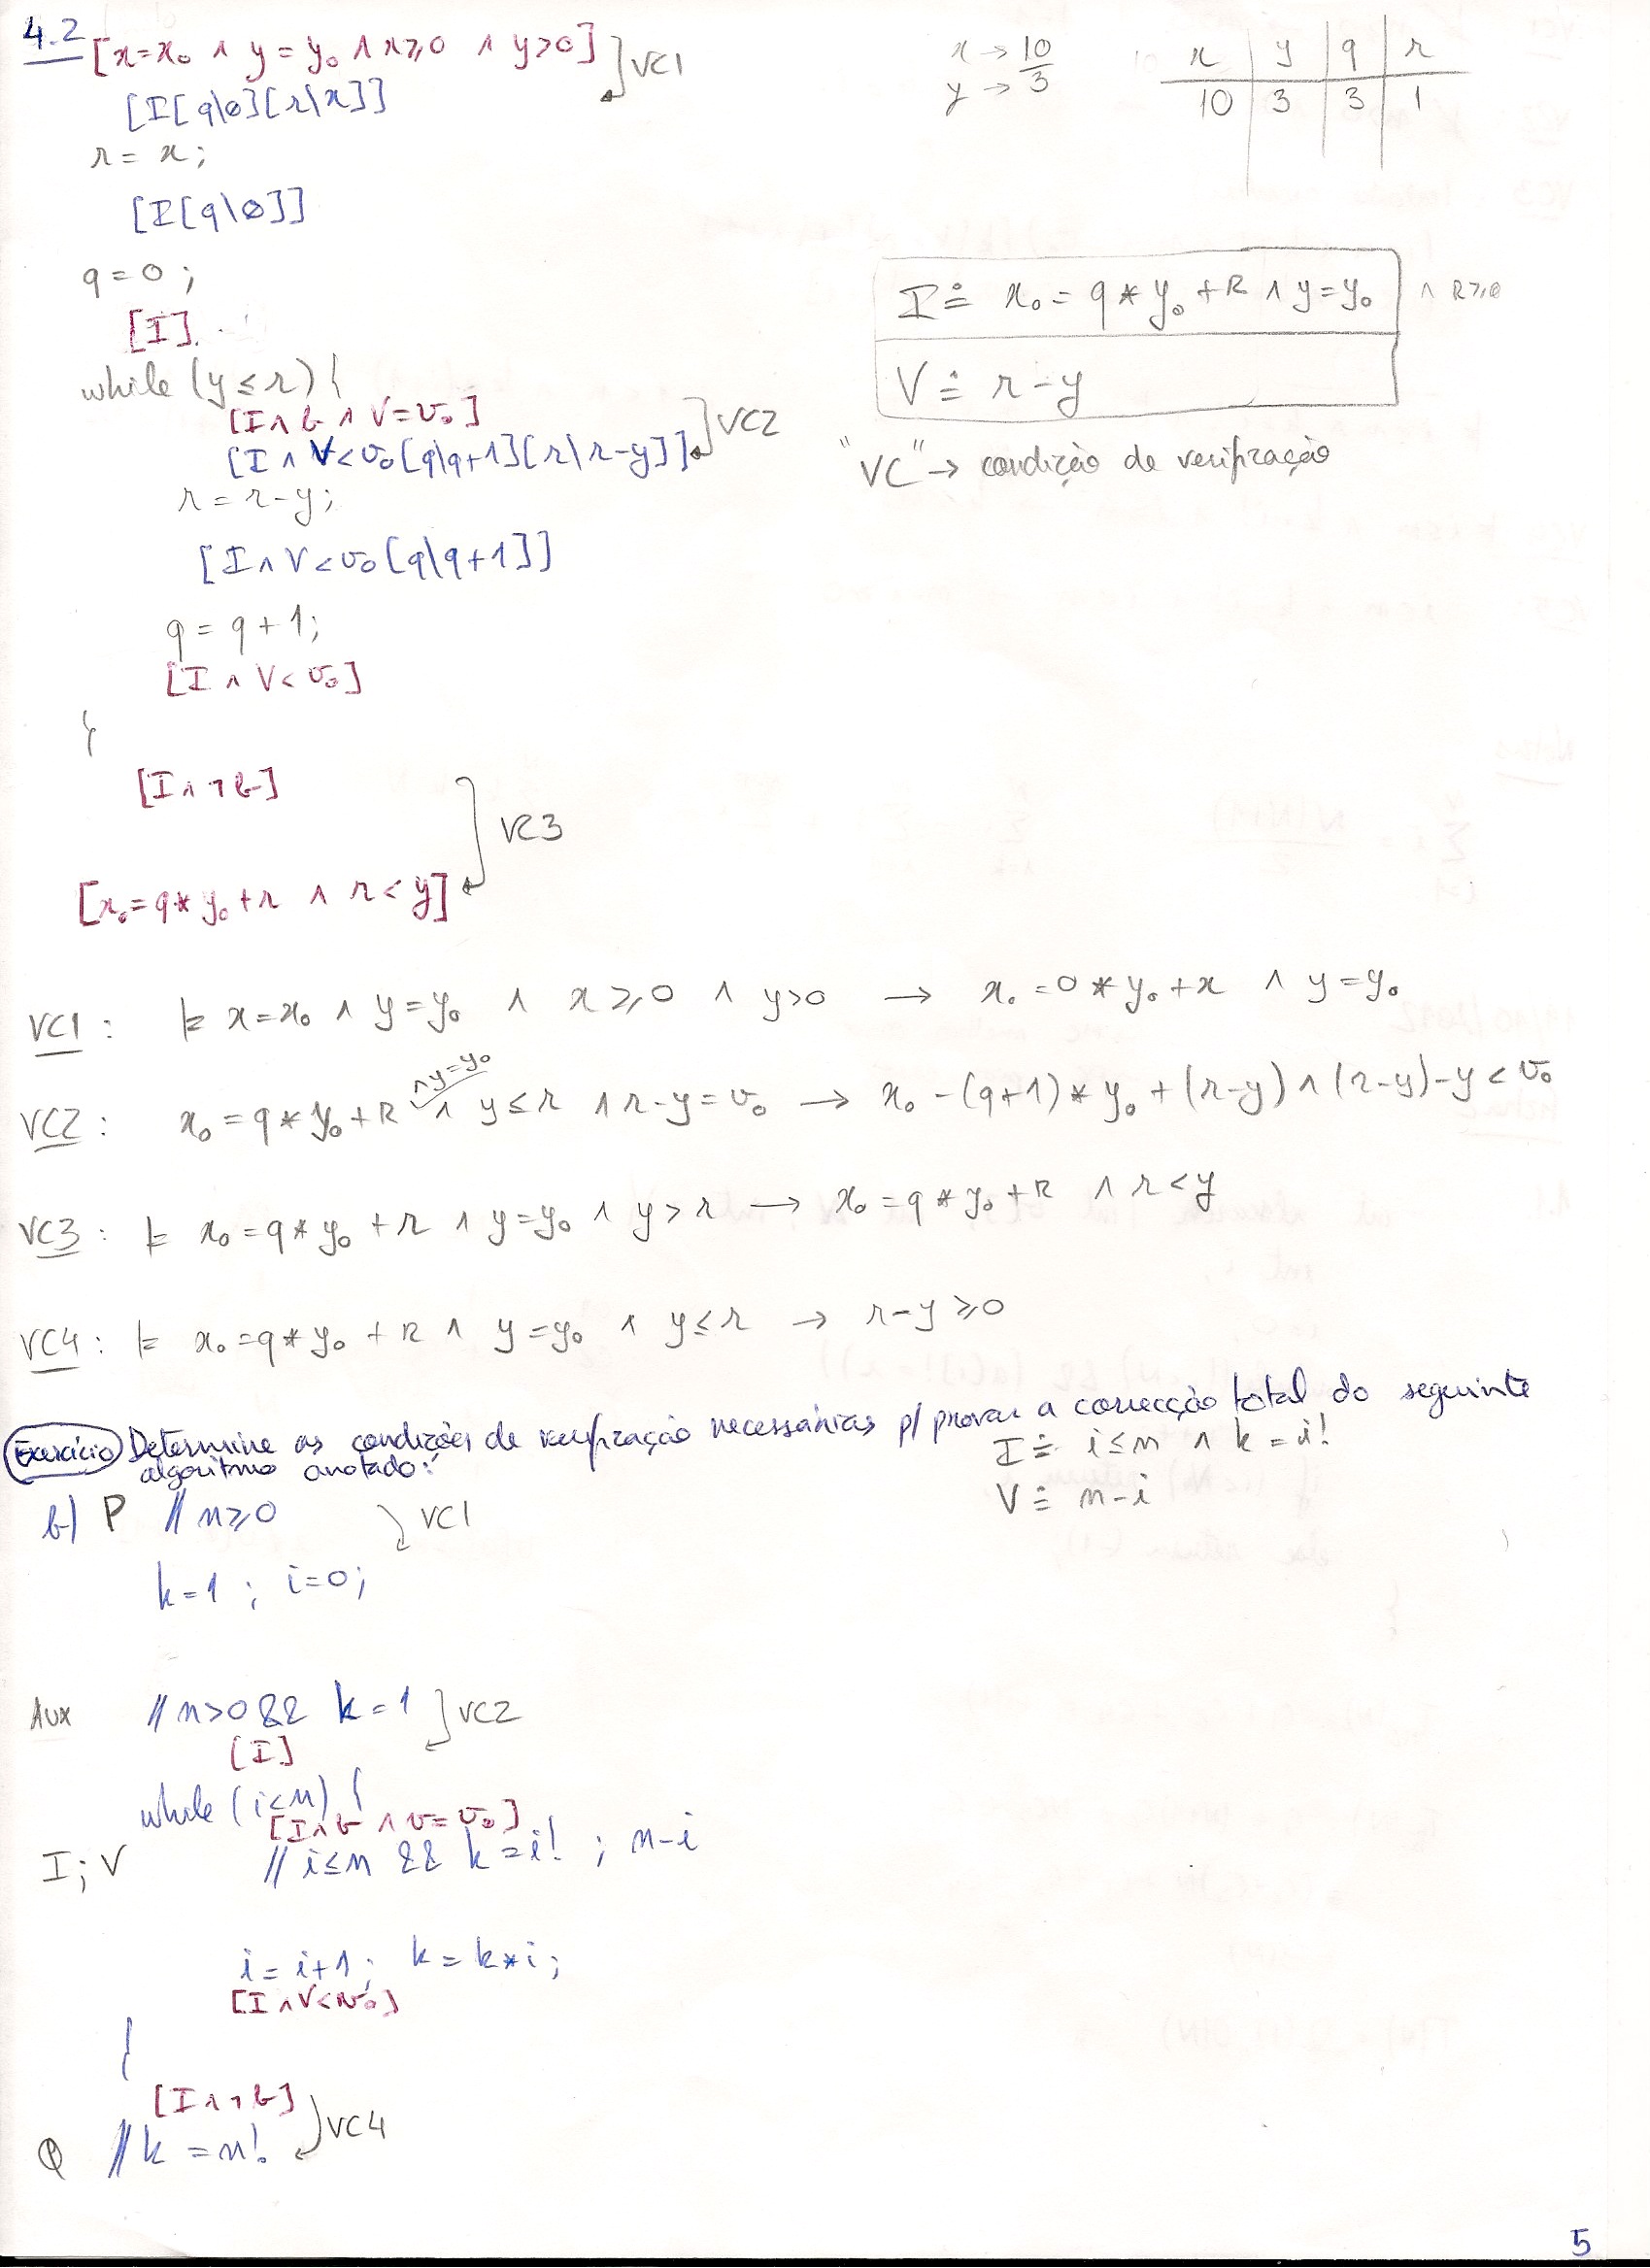 4.2 [x=x₀ ∧ y=y₀ ∧ x≥0 ∧ y>0] VC1
[I[q\0][r\x]]
r = x;
[I[q\0]]
q = 0;
[I]
while (y ≤ r) {
[I ∧ b ∧ V=v₀]
[I ∧ V<v₀[q\q+1][r\r-y]] VC2
r = r-y;
[I ∧ V<v₀[q\q+1]]
q = q+1;
[I ∧ V<v₀]
}
[I ∧ ¬b]
VC3
[x₀=q*y₀+r ∧ r<y]
x → 10
y → 3
x y q r
10 3 3 1
I ≐ x₀ = q*y₀+R ∧ y=y₀ ∧ R≥0
V ≐ r-y
"VC" → condição de verificação
VC1: ⊨ x=x₀ ∧ y=y₀ ∧ x≥0 ∧ y>0 → x₀=0*y₀+x ∧ y=y₀
VC2: x₀=q*y₀+R ∧y=y₀ ∧ y≤r ∧ r-y=v₀ → x₀-(q+1)*y₀+(r-y) ∧ (r-y)-y<v₀
VC3: ⊨ x₀=q*y₀+r ∧ y=y₀ ∧ y>r → x₀=q*y₀+R ∧ r<y
VC4: ⊨ x₀=q*y₀+R ∧ y=y₀ ∧ y≤r → r-y≥0
Exercício Determine as condições de verificação necessárias p/ provar a correcção total do seguinte
algoritmo anotado:
I ≐ i≤n ∧ k=i!
V ≐ n-i
b) P // n≥0 VC1
k=1; i=0;
Aux // n>0 && k=1 VC2
[I]
while (i<n) {
[I∧b ∧ v=v₀]
I; V // i≤n && k=i! ; n-i
i = i+1; k = k*i;
[I ∧ V<v₀]
}
[I ∧ ¬b]
Q // k = n! VC4
5